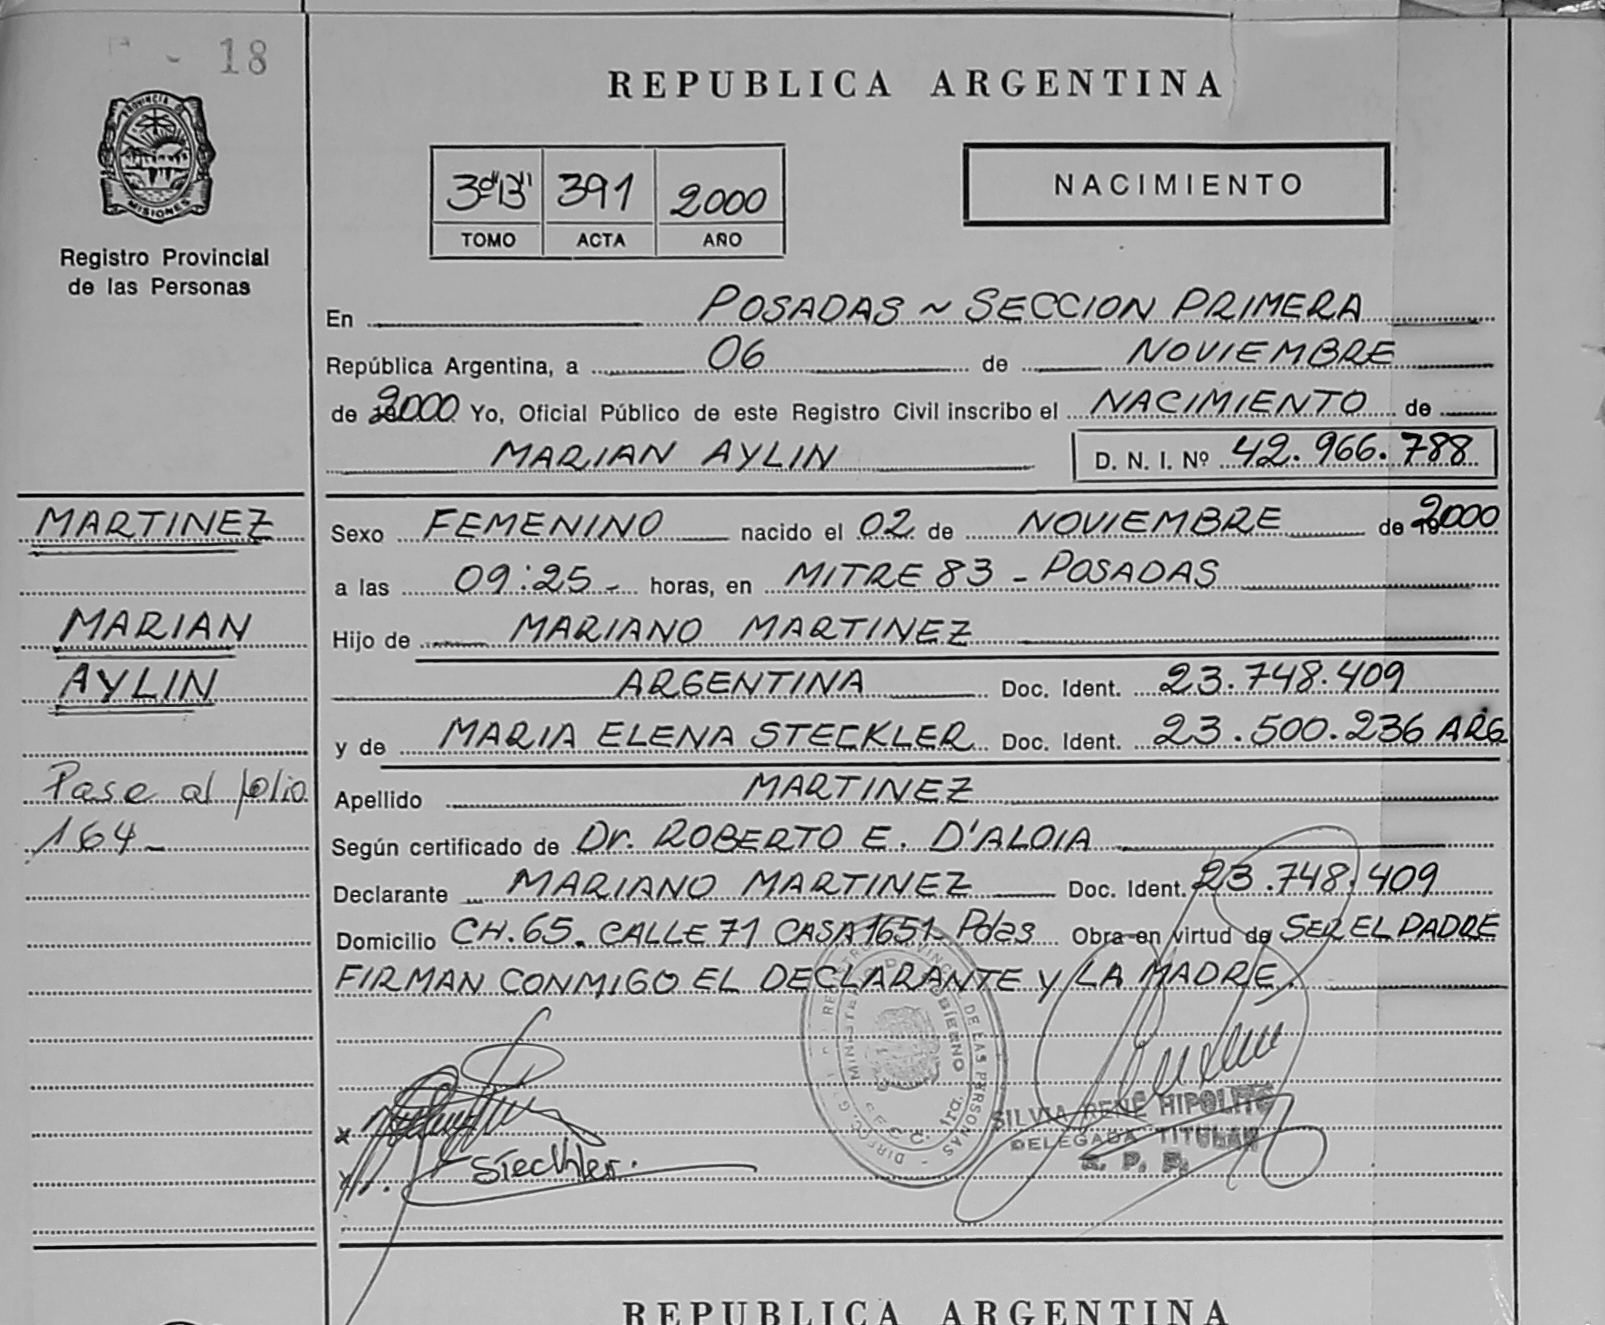 18
PROVINCIA DE
MISIONES
Registro Provincial
de las Personas
REPUBLICA ARGENTINA
3º "B" 391 2000
TOMO ACTA AÑO
NACIMIENTO
En POSADAS ~ SECCION PRIMERA
República Argentina, a 06 de NOVIEMBRE
de 2000 Yo, Oficial Público de este Registro Civil inscribo el NACIMIENTO de
MARIAN AYLIN D. N. I. Nº 42.966.788
MARTINEZ
MARIAN
AYLIN
Pase al folio
164-
Sexo FEMENINO nacido el 02 de NOVIEMBRE de 2000
a las 09:25- horas, en MITRE 83 - POSADAS
Hijo de MARIANO MARTINEZ
ARGENTINA Doc. Ident. 23.748.409
y de MARIA ELENA STECKLER Doc. Ident. 23.500.236 ARG
Apellido MARTINEZ
Según certificado de Dr. ROBERTO E. D'ALOIA
Declarante MARIANO MARTINEZ Doc. Ident. 23.748.409
Domicilio CH.65. CALLE 71 CASA 1651- Pdas Obra en virtud de SER EL PADRE
FIRMAN CONMIGO EL DECLARANTE Y LA MADRE.
DE LAS PERSONAS
MINISTERIO DE GOBIERNO
SILVIA RENÉ HIPOLITO
DELEGADA TITULAR
R. P. P.
x
Steckler.
REPUBLICA ARGENTINA